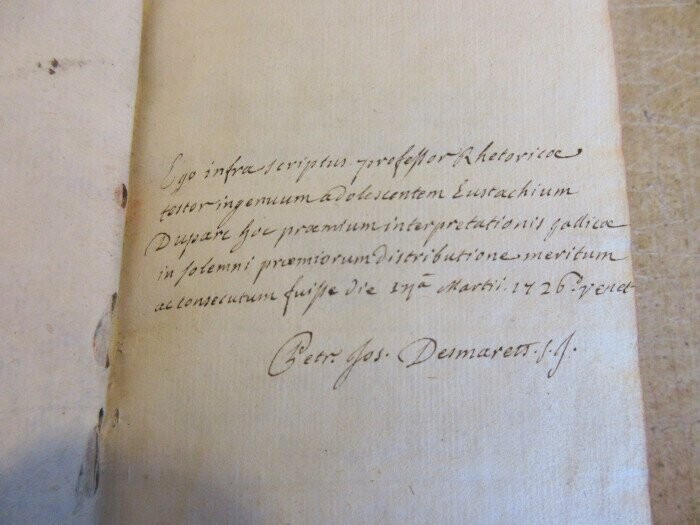 Ego infra scriptus professor Rhetoricæ
testor ingenuum adolescentem Eustachium
Duparc hoc præmium interpretationis gallicæ
in solemni præmiorum distributione meritum
ac consecutum fuisse die Martii. 1726.° Venet
Petr. Jos. Desmarett. s. J.